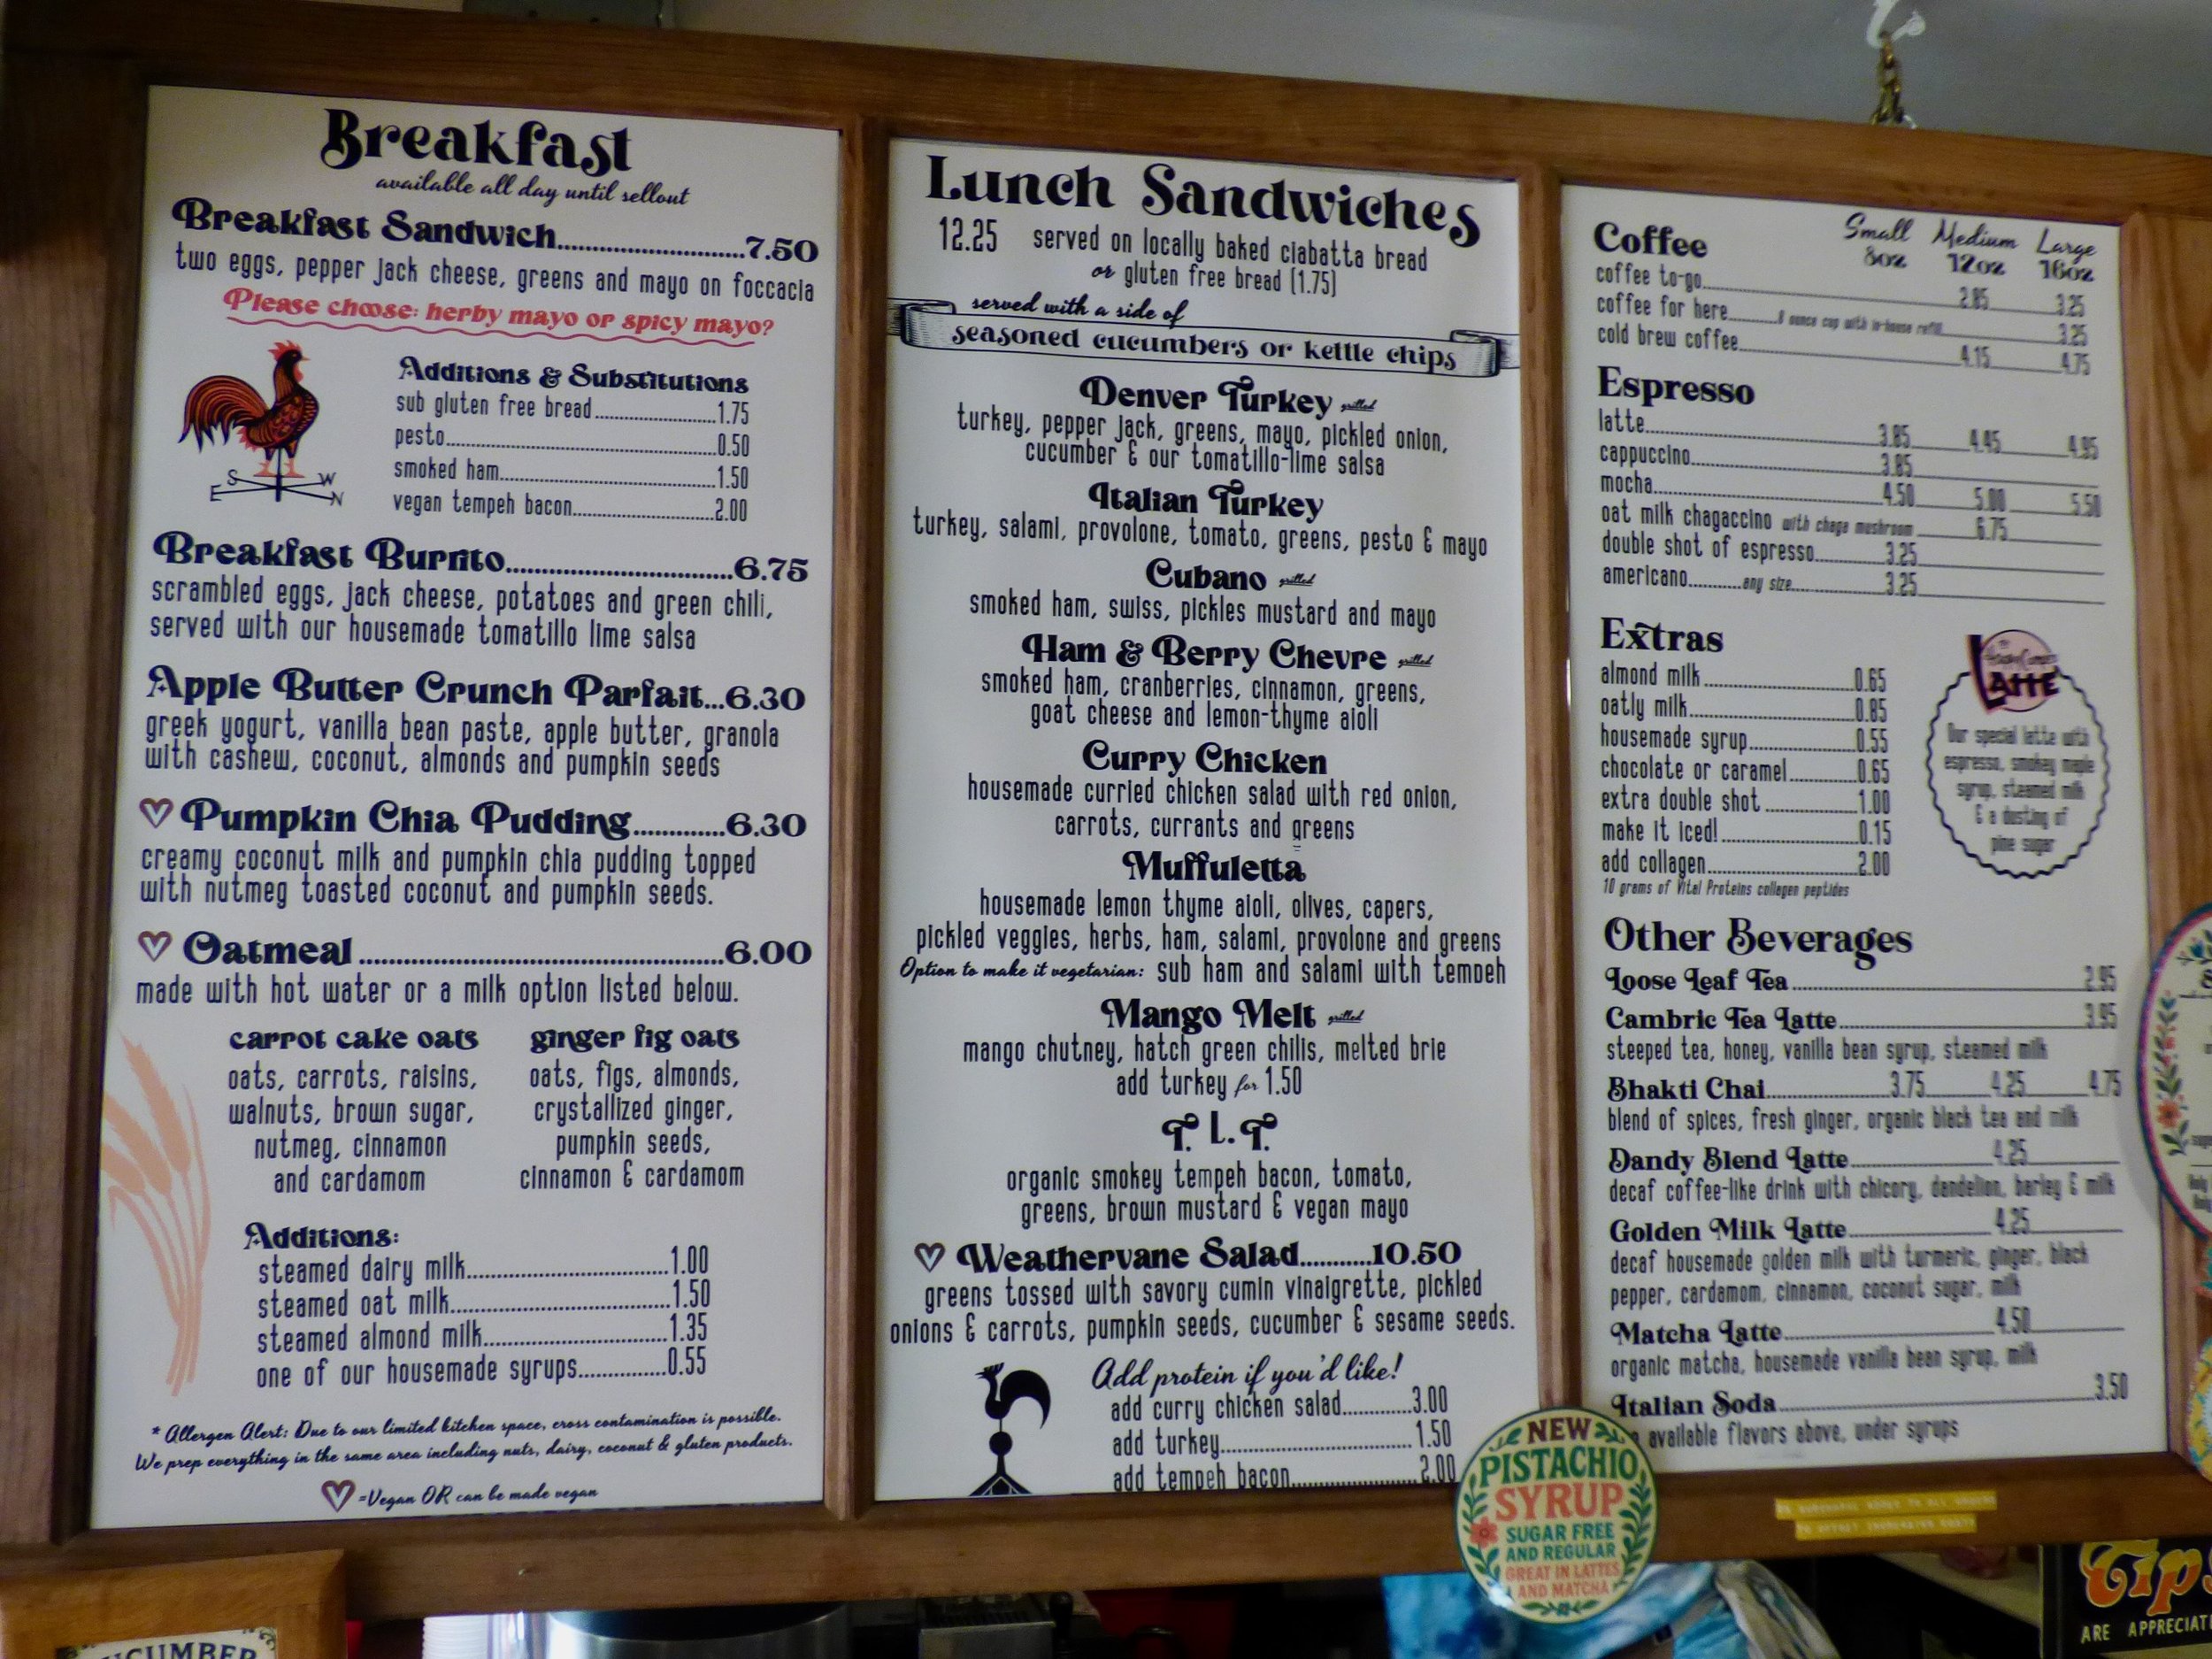 Breakfast
available all day until sellout
Breakfast Sandwich.....................7.50
two eggs, pepper jack cheese, greens and mayo on foccacia
Please choose: herby mayo or spicy mayo?
Additions & Substitutions
sub gluten free bread.....................1.75
pesto.....................0.50
smoked ham.....................1.50
vegan tempeh bacon.....................2.00
S W
E N
Breakfast Burrito.....................6.75
scrambled eggs, jack cheese, potatoes and green chili,
served with our housemade tomatillo lime salsa
Apple Butter Crunch Parfait...6.30
greek yogurt, vanilla bean paste, apple butter, granola
with cashew, coconut, almonds and pumpkin seeds
Pumpkin Chia Pudding.............6.30
creamy coconut milk and pumpkin chia pudding topped
with nutmeg toasted coconut and pumpkin seeds.
Oatmeal.....................6.00
made with hot water or a milk option listed below.
carrot cake oats
oats, carrots, raisins,
walnuts, brown sugar,
nutmeg, cinnamon
and cardamom
ginger fig oats
oats, figs, almonds,
crystallized ginger,
pumpkin seeds,
cinnamon & cardamom
Additions:
steamed dairy milk.....................1.00
steamed oat milk.....................1.50
steamed almond milk.....................1.35
one of our housemade syrups.............0.55
* Allergen Alert: Due to our limited kitchen space, cross contamination is possible.
We prep everything in the same area including nuts, dairy, coconut & gluten products.
=Vegan OR can be made vegan
Lunch Sandwiches
12.25 served on locally baked ciabatta bread
or gluten free bread (1.75)
served with a side of
seasoned cucumbers or kettle chips
Denver Turkey grilled
turkey, pepper jack, greens, mayo, pickled onion,
cucumber & our tomatillo-lime salsa
Italian Turkey
turkey, salami, provolone, tomato, greens, pesto & mayo
Cubano grilled
smoked ham, swiss, pickles mustard and mayo
Ham & Berry Chevre grilled
smoked ham, cranberries, cinnamon, greens,
goat cheese and lemon-thyme aioli
Curry Chicken
housemade curried chicken salad with red onion,
carrots, currants and greens
Muffuletta
housemade lemon thyme aioli, olives, capers,
pickled veggies, herbs, ham, salami, provolone and greens
Option to make it vegetarian: sub ham and salami with tempeh
Mango Melt grilled
mango chutney, hatch green chilis, melted brie
add turkey for 1.50
T. L. T.
organic smokey tempeh bacon, tomato,
greens, brown mustard & vegan mayo
Weathervane Salad..........10.50
greens tossed with savory cumin vinaigrette, pickled
onions & carrots, pumpkin seeds, cucumber & sesame seeds.
Add protein if you'd like!
add curry chicken salad............3.00
add turkey.....................1.50
add tempeh bacon.....................2.00
Coffee Small Medium Large
8oz 12oz 16oz
coffee to-go.....................2.85 3.25
coffee for here..........8 ounce cup with in-house refill..........3.25
cold brew coffee.....................4.15 4.75
Espresso
latte.....................3.85 4.45 4.95
cappuccino.....................3.85
mocha.....................4.50 5.00 5.50
oat milk chagaccino with chaga mushroom 6.75
double shot of espresso..........3.25
americano..........any size..........3.25
Extras
almond milk.....................0.65
oatly milk.....................0.85
housemade syrup.....................0.55
chocolate or caramel.............0.65
extra double shot.............1.00
make it iced!.....................0.15
add collagen.....................2.00
10 grams of Vital Proteins collagen peptides
LATTE
Our special latte with
espresso, smokey maple
syrup, steamed milk
& a dusting of
pine sugar
Other Beverages
Loose Leaf Tea.....................2.95
Cambric Tea Latte.....................3.95
steeped tea, honey, vanilla bean syrup, steamed milk
Bhakti Chai.............3.75 4.25 4.75
blend of spices, fresh ginger, organic black tea and milk
Dandy Blend Latte.............4.25
decaf coffee-like drink with chicory, dandelion, barley & milk
Golden Milk Latte.............4.25
decaf housemade golden milk with turmeric, ginger, black
pepper, cardamom, cinnamon, coconut sugar, milk
Matcha Latte.....................4.50
organic matcha, housemade vanilla bean syrup, milk
Italian Soda.....................3.50
available flavors above, under syrups
NEW
PISTACHIO
SYRUP
SUGAR FREE
AND REGULAR
GREAT IN LATTES
AND MATCHA
Tip
ARE APPRECIAT
CUCUMBER